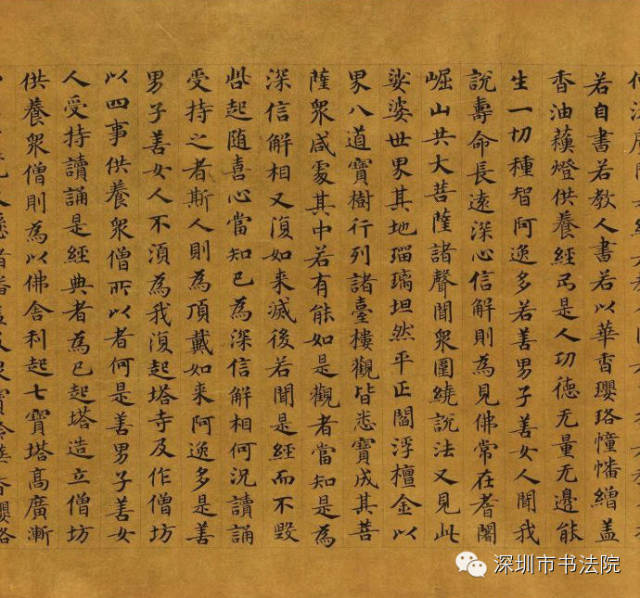 若自書若教人書若以華香瓔珞幢幡繒蓋
香油蘓燈供養經是人功德无量无邊能
生一切種智阿逸多若善男子善女人聞我
說壽命長遠深心信解則為見佛常在耆闍
崛山共大菩薩諸聲聞衆圍繞說法又見此
娑婆世界其地瑠璃坦然平正閻浮檀金以
界八道寶樹行列諸臺樓觀皆悉寶成其菩
薩衆咸處其中若有能如是觀者當知是為
深信解相又復如来滅後若聞是經而不毀
呰起随喜心當知已為深信解相何況讀誦
受持之者斯人則為頂戴如来阿逸多是善
男子善女人不湏為我復起塔寺及作僧坊
以四事供養衆僧所以者何是善男子善女
人受持讀誦是經典者為已起塔造立僧坊
供養衆僧則為以佛舍利起七寶塔高廣漸
深圳市书法院